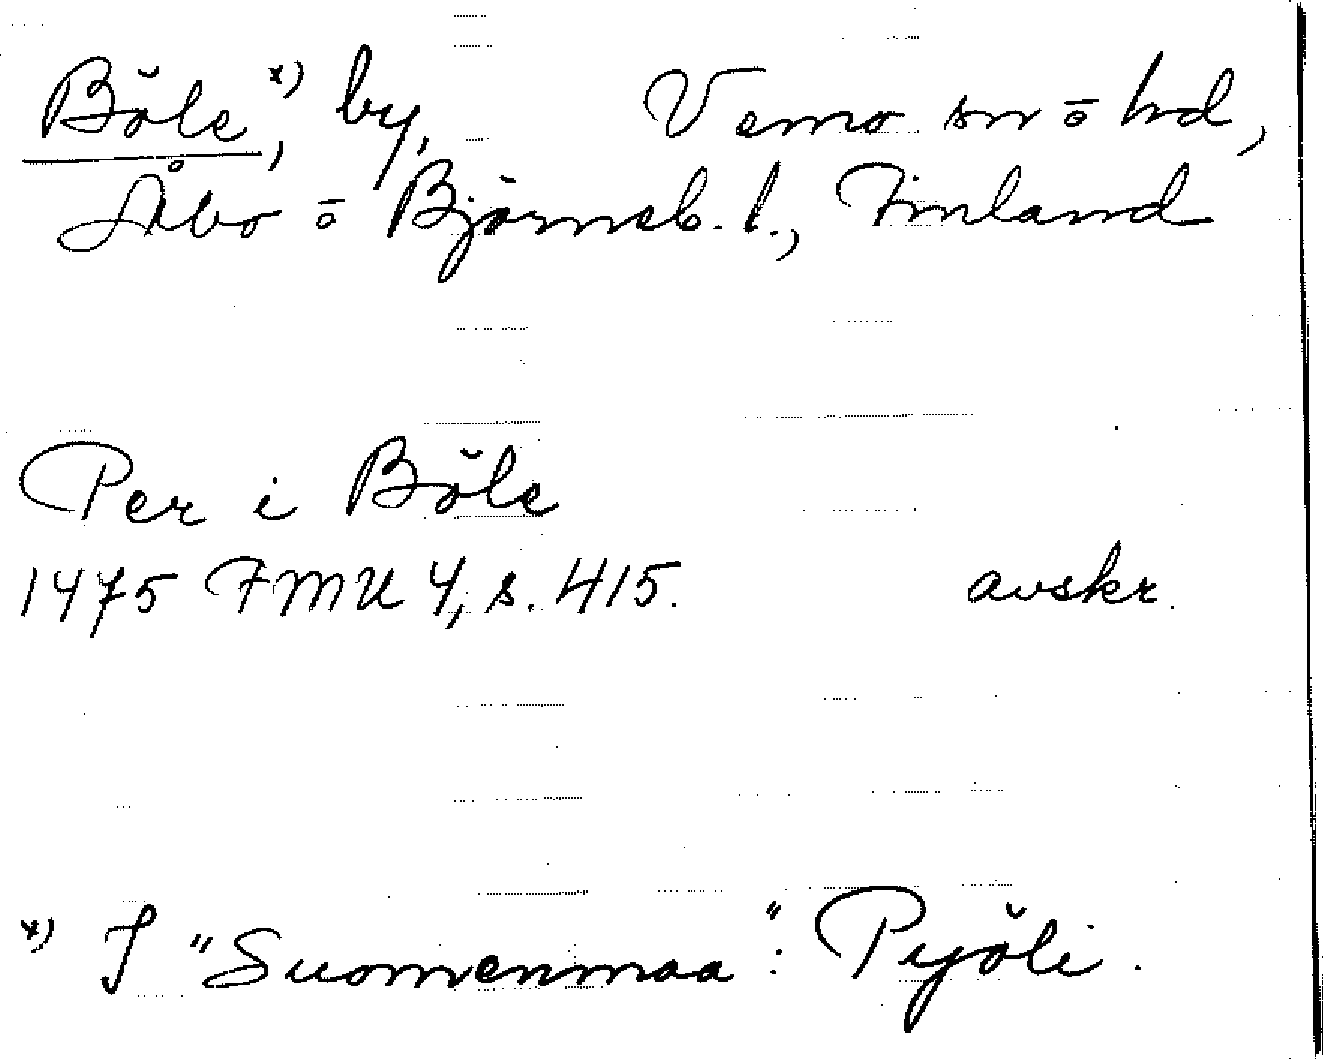 Böle,ˣ⁾ by, Vemo sn o hd,
Åbo o Björneb. l., Finland
Per i Böle
1475 FMU 4, s. 415. avskr.
x) I "Suomenmaa": Pyöli.